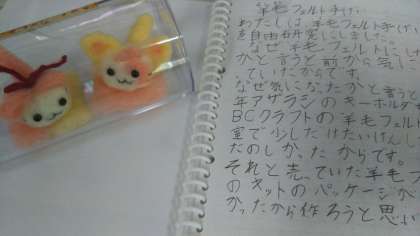 羊毛フェルト手げい
わたしは、羊毛フェルト手げい
を自由研究にしました。
なぜ羊毛フェルトにし
かと言うと前から気に
ていたからです。
なぜ気になったかと言うと
年アザラシのキーホルダ
BCクラフトの羊毛フェルト
室で少したいけんし
たのしかったからです。
それと売っていた羊毛フ
のキットのパッケージが
かったから作ろうと思い